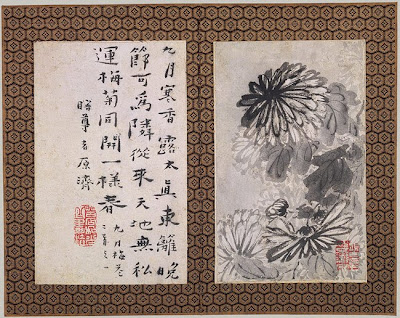 九月寒香露太真東籬晚
節可為隣從來天地無私
運梅菊同開一樣春
九月梅
二首之一
瞎尊者原濟